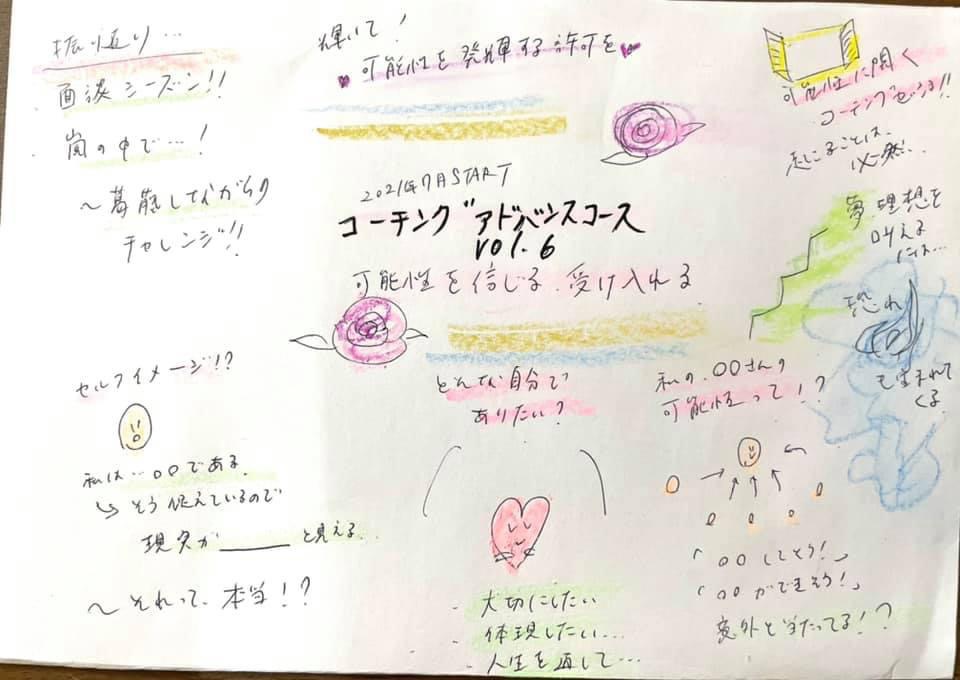 振り返り…
面談シーズン!!
嵐の中で…!
～葛藤しながらの
チャレンジ!!
輝いて!
可能性を発揮する許可を
可能性に開く
コーチングセッション!!
起こることは、
必然…
2021年7月START
コーチング アドバンスコース
vol.6
可能性を信じる、受け入れる
夢、理想を
叶える
には…
恐れ
も生まれて
くる
セルフイメージ!?
私は…〇〇である。
そう捉えているので
現実が____と見える。
～それって、本当!?
どんな自分で
ありたい?
大切にしたい
体現したい…
人生を通して…
私の、〇〇さんの
可能性って!?
「〇〇してそう!」
「〇〇ができそう!」
意外と当たってる!?